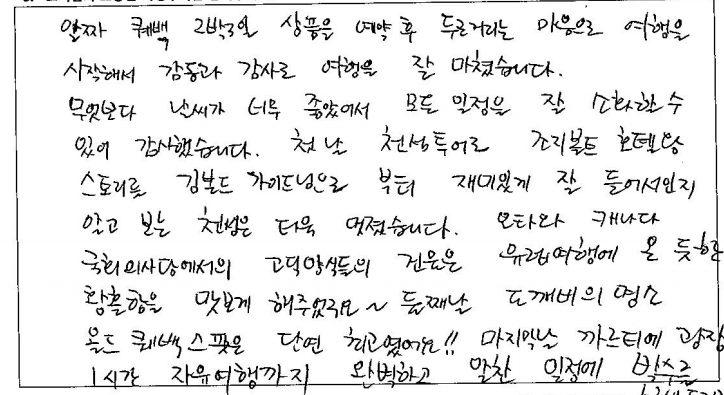 알짜 퀘백 2박3일 상품을 예약 후 두르거리는 마음으로 여행을
시작해서 감동과 감사로 여행을 잘 마쳤습니다.
무엇보다 날씨가 너무 좋았어서 모든 일정을 잘 소화할 수
있어 감사했습니다. 첫날 천섬투어로 조지볼트 호텔왕
스토리를 김볼드 가이드님으로 부터 재미있게 잘 들어서인지
알고 보는 천섬은 더욱 멋졌습니다. 오타와 캐나다
국회의사당에서의 고딕양식들의 건물은 유럽여행에 온 듯한
황홀함을 맛보게 해주었구요~ 둘째날 도깨비의 명소
올드 퀘백 스팟은 단연 최고였어요!! 마지막날 까르티에 광장
1시간 자유여행까지 완벽하고 알찬 일정에 박수를